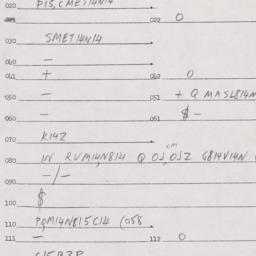 020 P15, CMET14N14
022 0
030 SMET14N14
040 —
041 + 042 0
050 — 051 + Q MASL814N
060 — 061 $ —
070 K14Z
080 IN RVM14N814 Q OJ, OJZ G814V14N
090 —/—
100 $
110 PQM14N815C14 (058
111 — 112 0